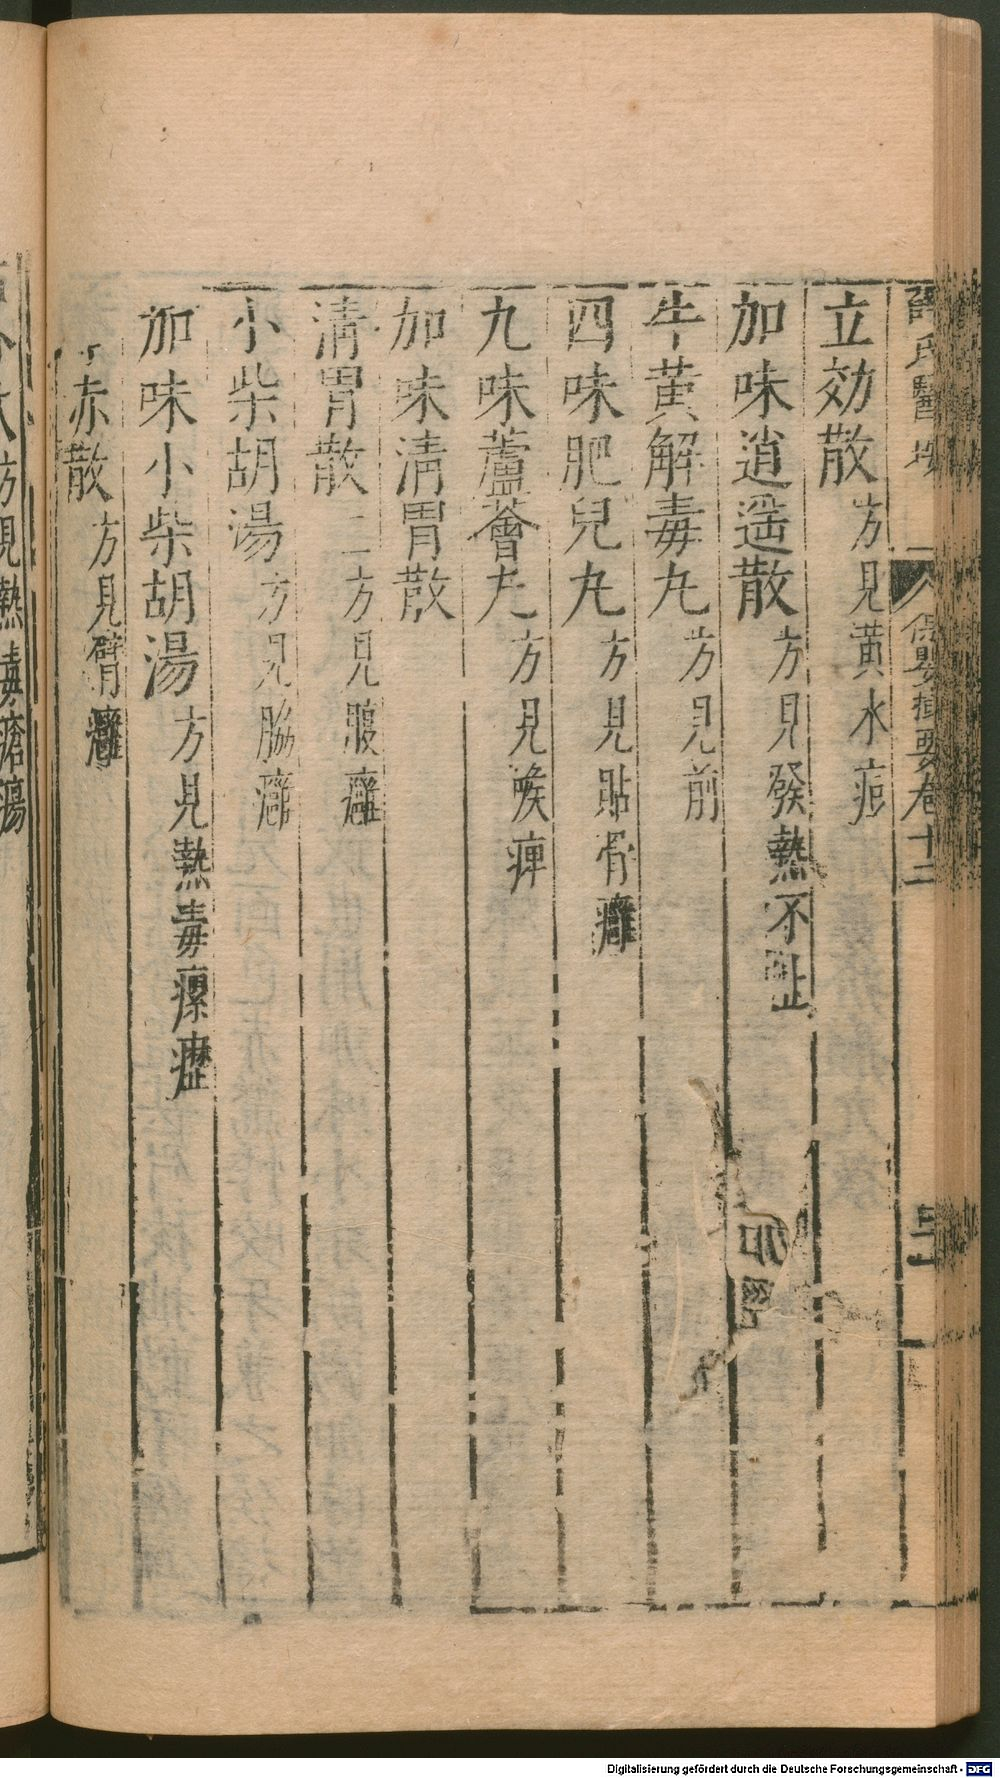 薛氏醫
保嬰撮要卷十二
立効散方見黃水疮
加味逍遥散方見發熱不止
牛黃解毒丸方見前
四味肥兒丸方見貼骨癰
九味蘆薈丸方見喉痺
加味清胃散
清胃散二方見腹癰
小柴胡湯方見脇癰
加味小柴胡湯方見熱毒瘰癧
赤散方見臂癰
方見熱毒瘡瘍
Digitalisierung gefördert durch die Deutsche Forschungsgemeinschaft - DFG